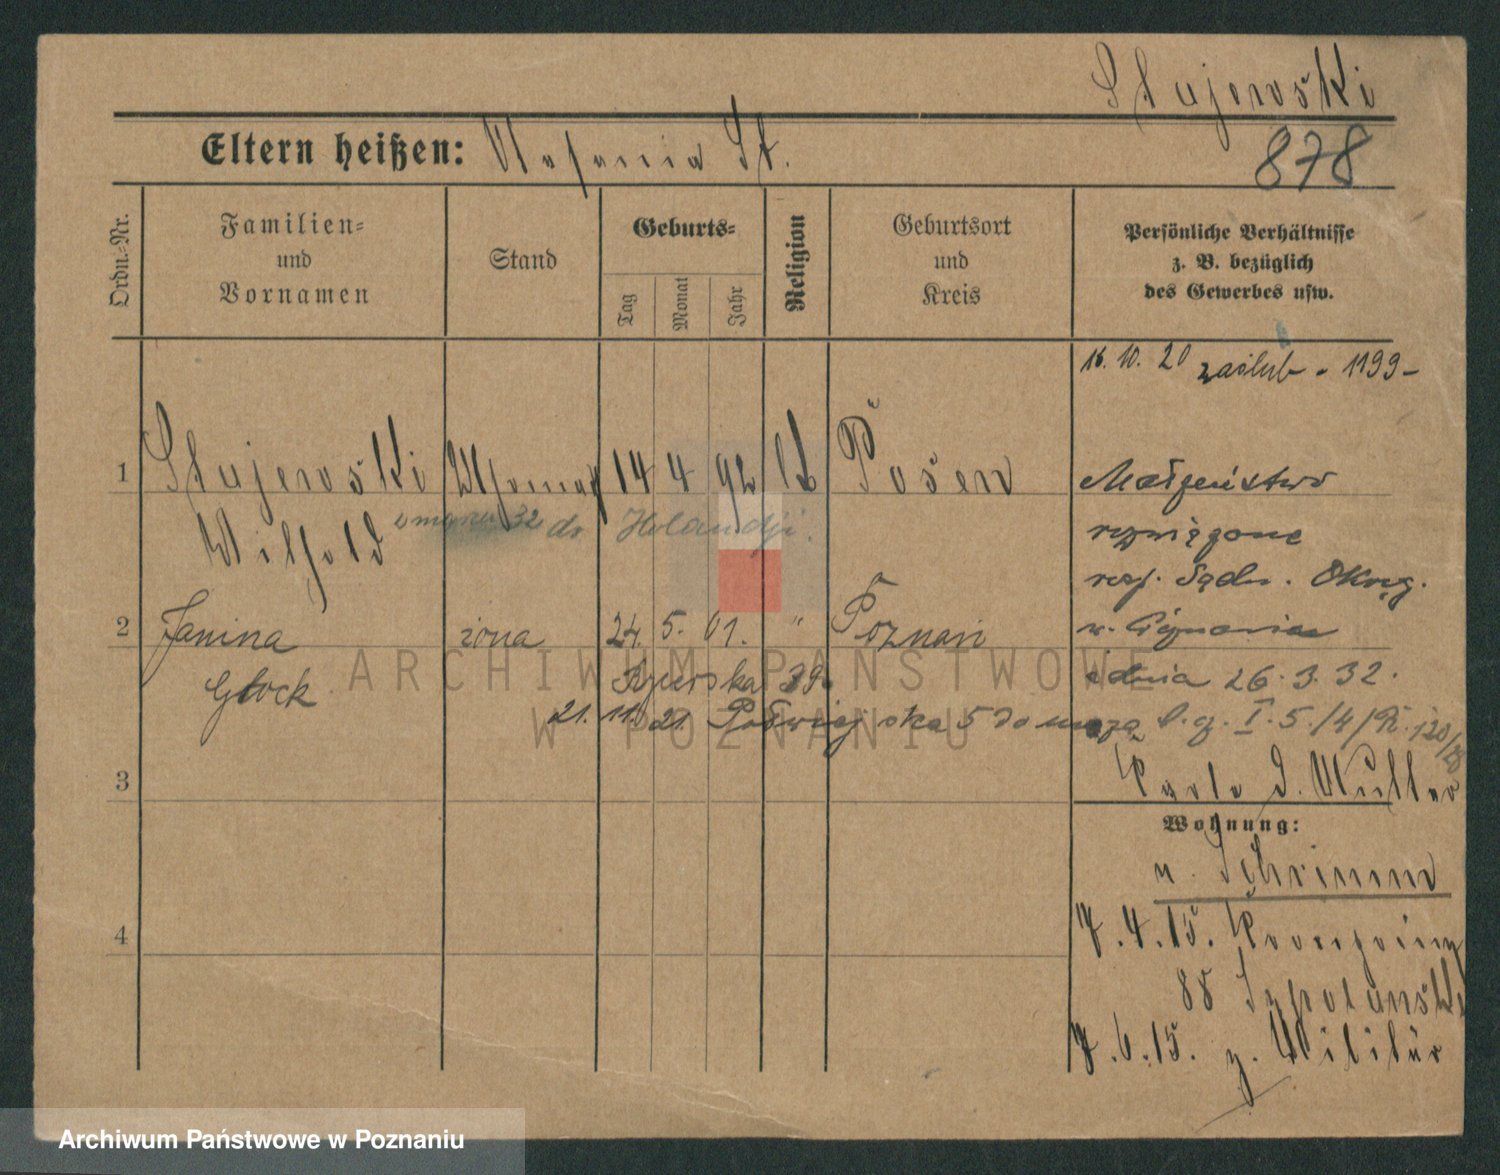 Stujewski
Eltern heißen: Stefania St.
878
Ordn.-Nr.
Familien-
und
Vornamen
Stand
Geburts-
Tag
Monat
Jahr
Religion
Geburtsort
und
Kreis
Persönliche Verhältnisse
z. B. bezüglich
des Gewerbes usw.
16. 10. 20 zaślub - 1199 -
1 Stujewski 14 4 92 k Posen
32 do Holandji.
Małżeństwo
rozwiązane
Sądu. Okręg.
w. Poznaniu
z dnia 26.3.32.
2 Janina żona 24. 5. 01. " Poznań
Glock
39.
21. 11. 21. 5 do męża l. cz. I. 5. /4/R. 120/28
3
Wohnung:
n. Schrimm
4
7.4.15.
88 Szpotanski
7.6.15. z. Militär
ARCHIWUM PAŃSTWOWE
W POZNANIU
Archiwum Państwowe w Poznaniu